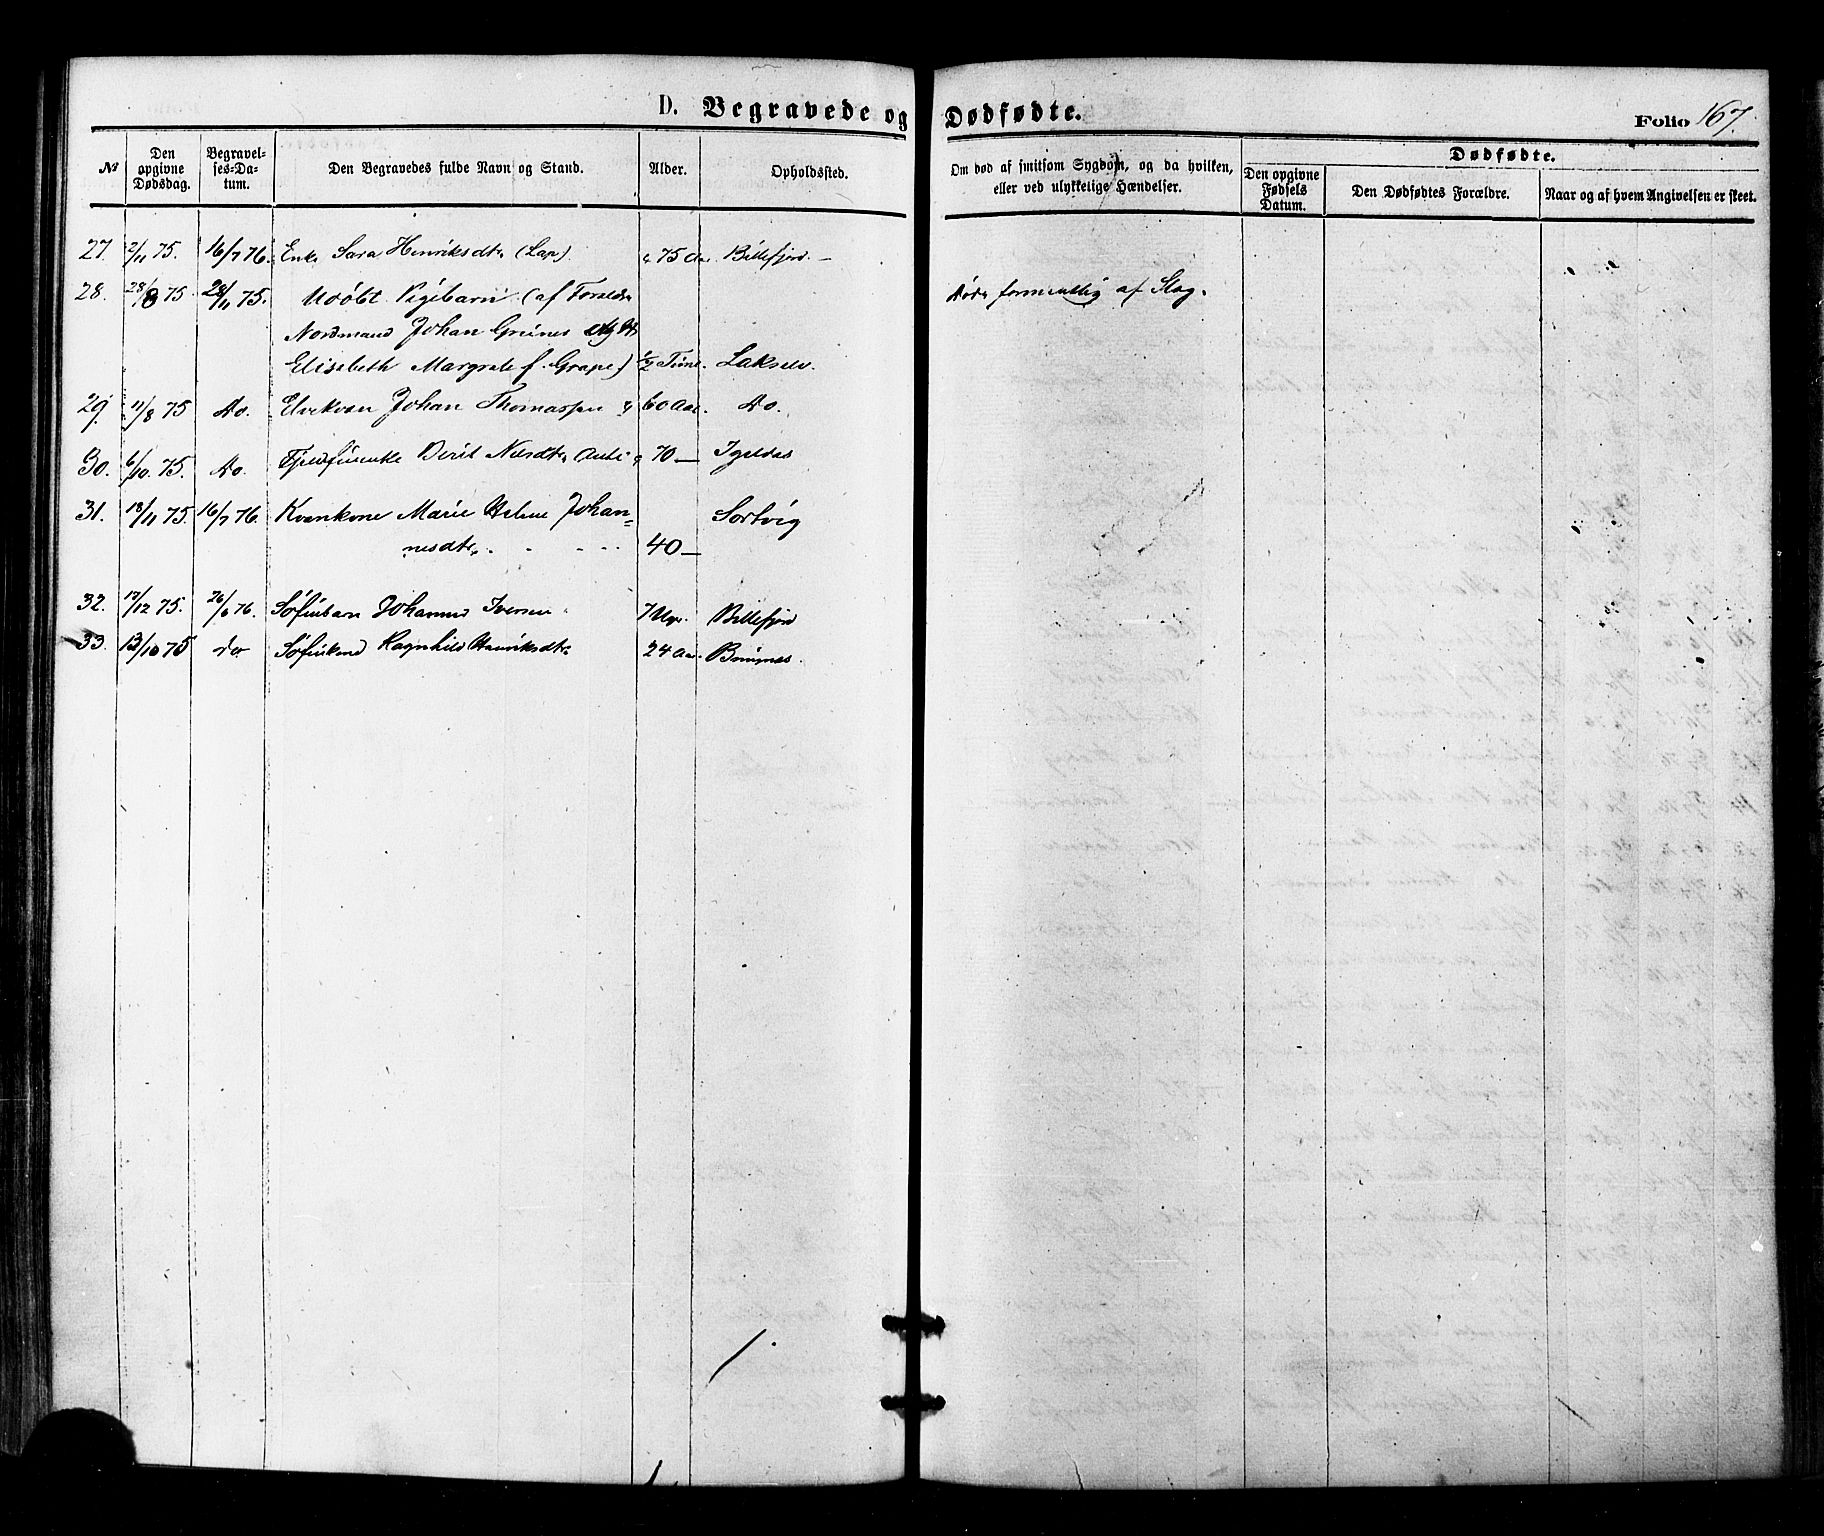 D. Begravede og Dødfødte.
Folio 167.
№
Den opgivne Dødsdag.
Begravelses-Datum.
Den Begravedes fulde Navn og Stand.
Alder.
Opholdssted.
Om død af smitsom Sygdom, og da hvilken, eller ved ulykkelige Hændelser.
Dødfødte.
Den opgivne Fødsels Datum.
Den Dødfødtes Forældre.
Naar og af hvem Angivelsen er skeet.
27. 2/11 75. 16/7 76. Enke Sara Henriksdtr (Lap) 75 Aar Billefjord
28. 28/8 75. 28/11 75. Udøbt Pigebarn (af Forældre Døde formentlig af Slag.
Nordmand Johan Grünes og
Elisabeth Margrete f. Grape) 1/2 Time. Lakselv.
29. 11/8 75 Do. Elvekvæn Johan Thomassen 60 Aar. Do.
30. 6/10. 75. Do. Fjeldfinenke Berit Nilsdtr 70 — Igeldas
31. 18/11 75. 16/7 76. Kvænkone Marie Helene Johan= Sortvig
nesdtr. 40 —
32. 12/12 75. 26/6 76. Søfinbarn Johannes Iversen 7 Uger. Billefjord
33. 13/10 75 do Søfinkone Ragnhild Henriksdtr 24 Aar.